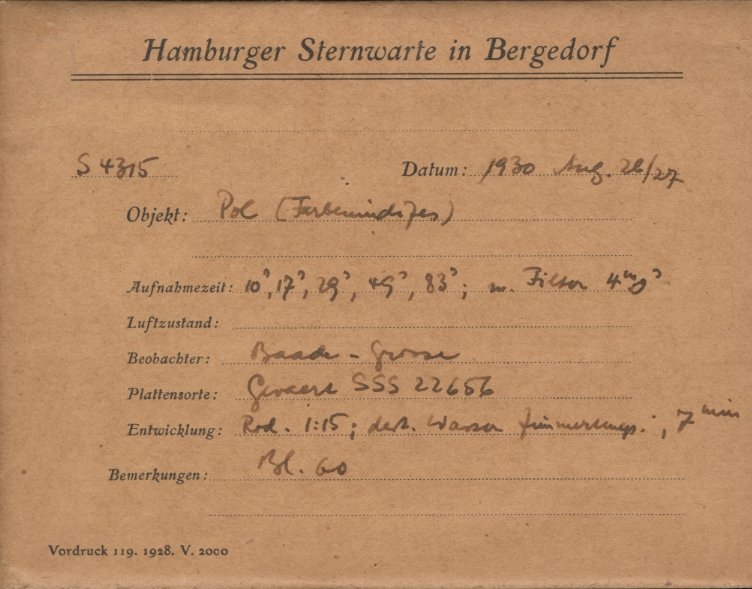 Hamburger Sternwarte in Bergedorf
S 4315 Datum: 1930 Aug. 26/27
Objekt: Pol (Farbenindizes)
Aufnahmezeit: 10ˢ, 17ˢ, 29ˢ, 49ˢ, 83ˢ; m. Filter 4ᵐ
Luftzustand:
Beobachter: Baade - Grosse
Plattensorte: Gevaert SSS 22656
Entwicklung: Rod. 1:15; dest. Wasser Zimmertemp.; 7 min
Bemerkungen: Bl. 60
Vordruck 119. 1928. V. 2000